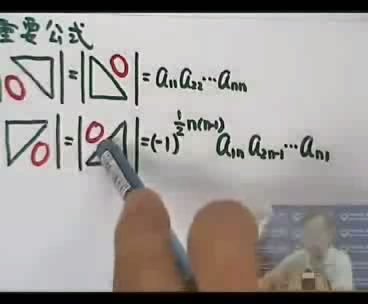 重要公式
|0| = |0| = a₁₁a₂₂⋯aₙₙ
|0| = |0| = (-1)^{½n(n-1)} a₁ₙa₂ₙ₋₁⋯aₙ₁